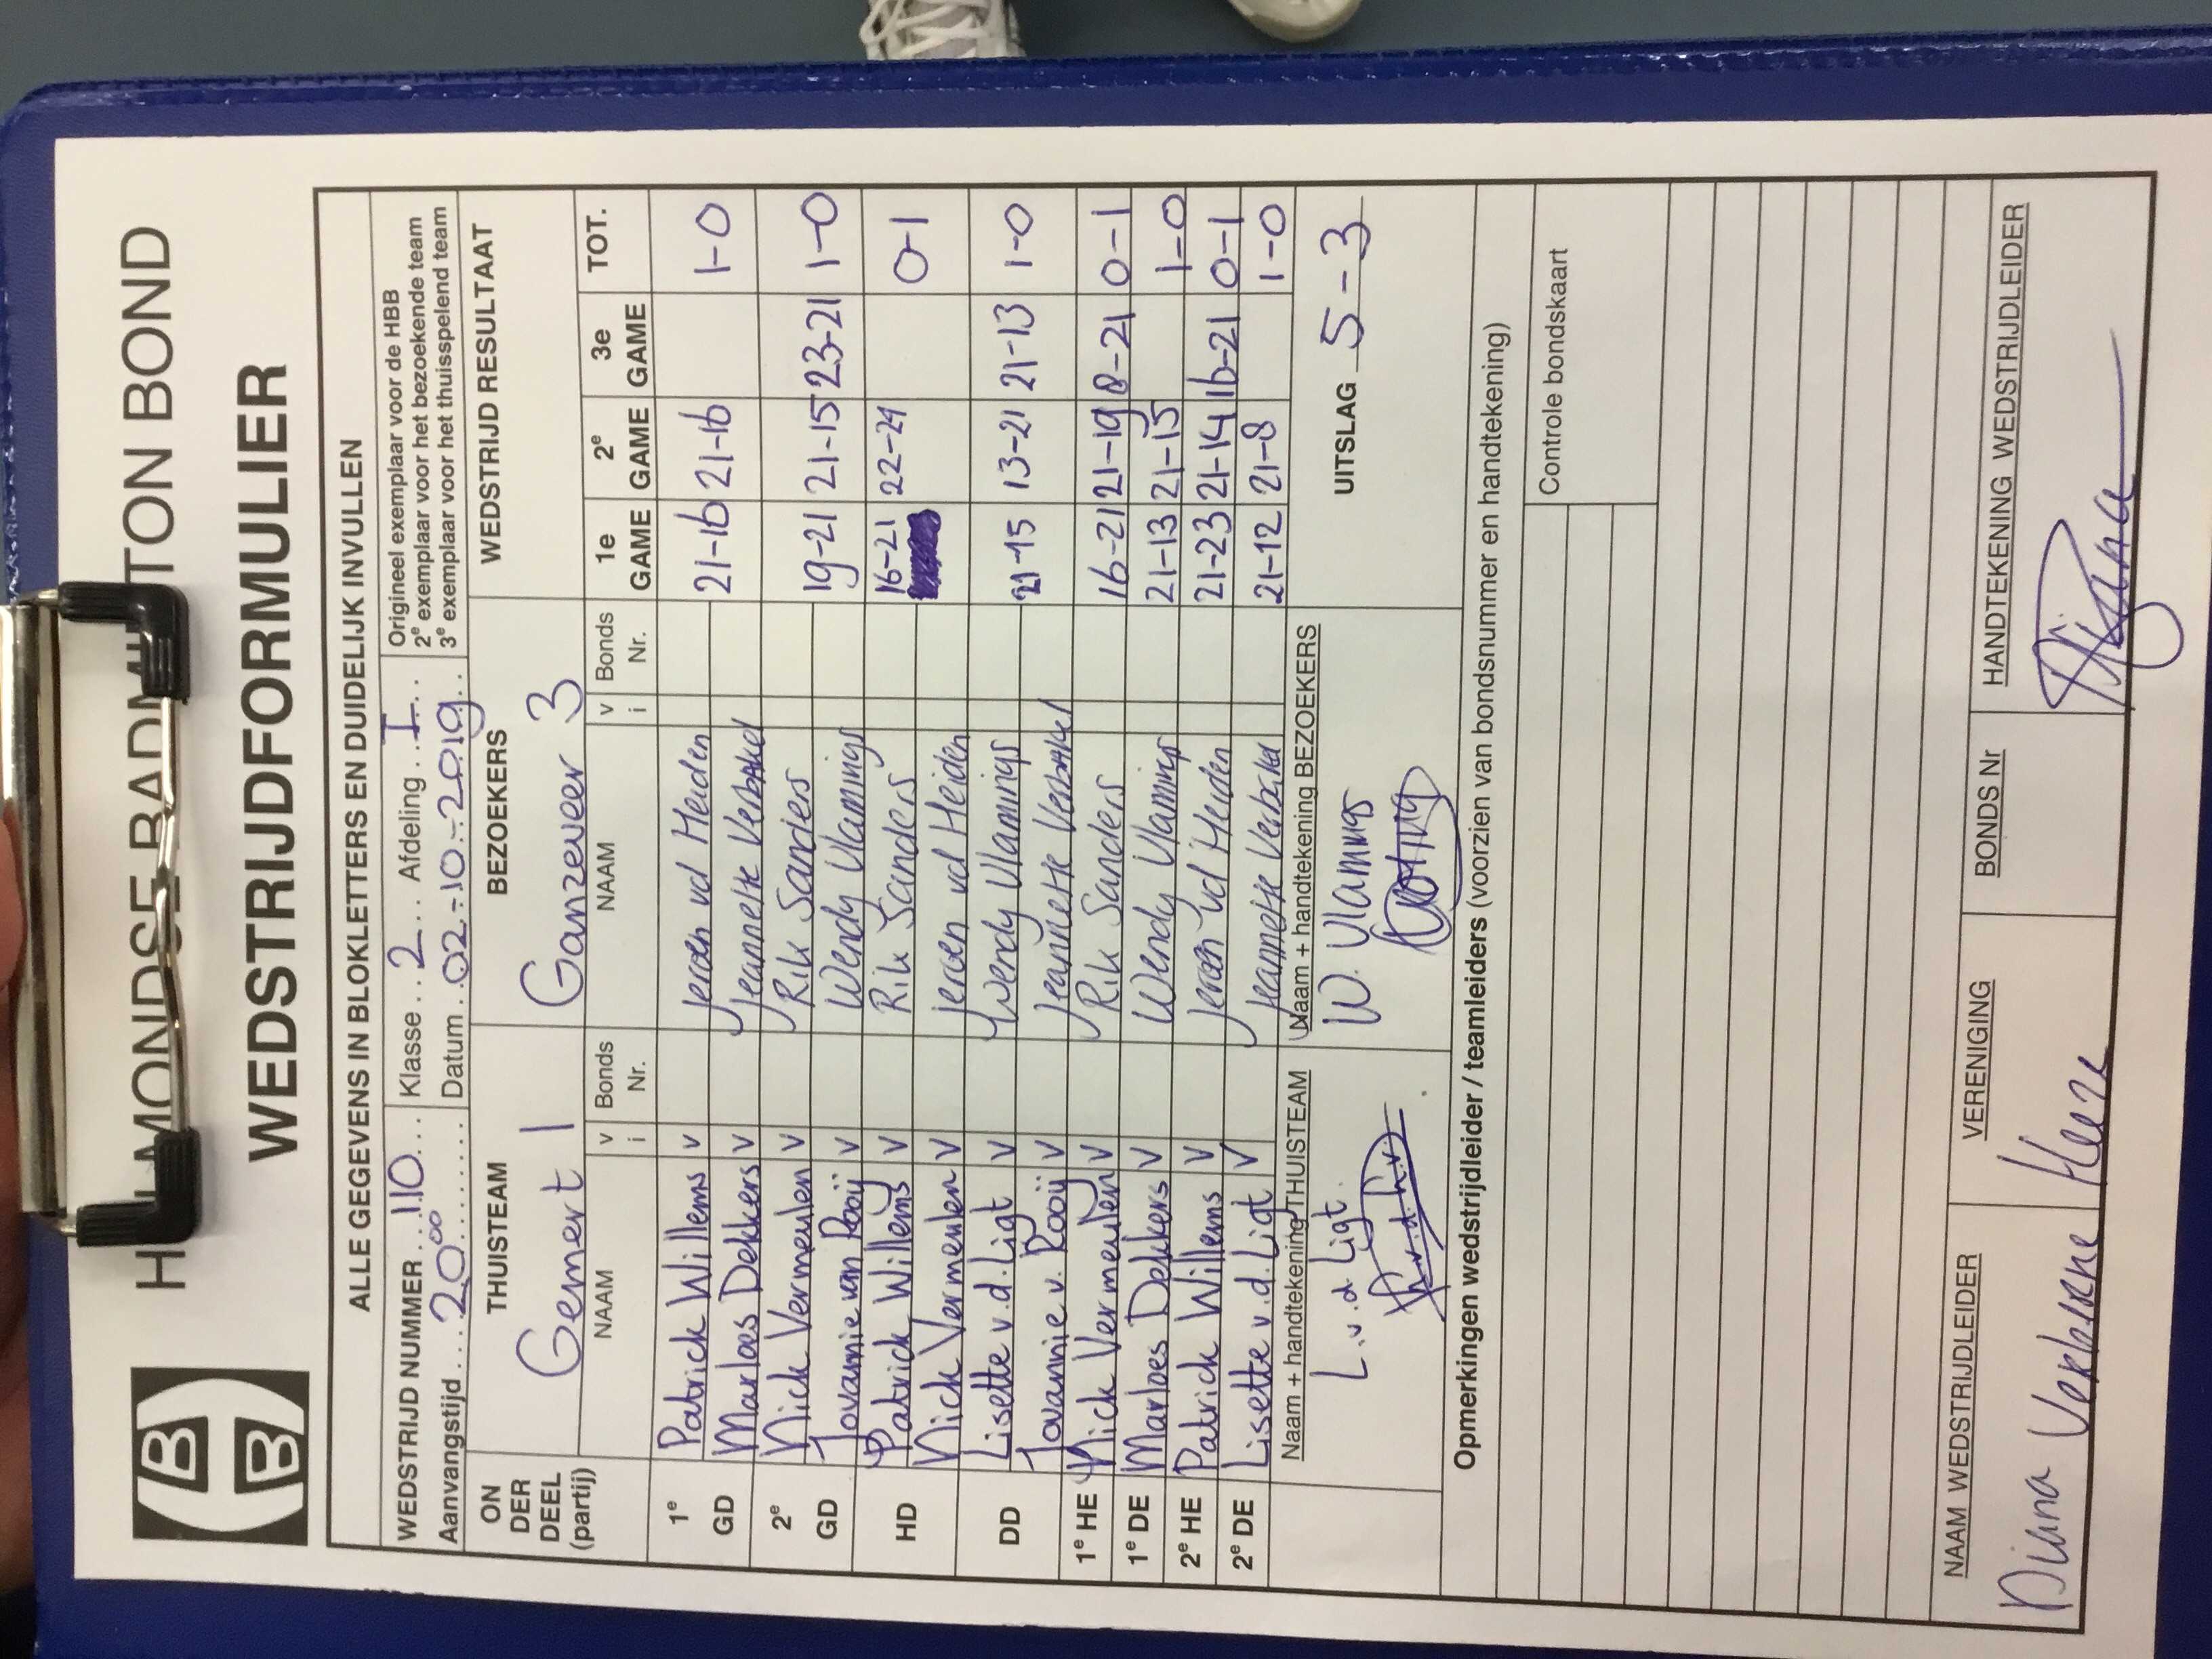 HELMONDSE BADMINTON BOND
WEDSTRIJDFORMULIER
ALLE GEGEVENS IN BLOKLETTERS EN DUIDELIJK INVULLEN
WEDSTRIJD NUMMER ...110... Klasse ..2... Afdeling ..I... Origineel exemplaar voor de HBB
2e exemplaar voor het bezoekende team
Aanvangstijd ...20.00....... Datum ..02-10-2019.. 3e exemplaar voor het thuisspelend team
ON DER DEEL (partij) THUISTEAM BEZOEKERS WEDSTRIJD RESULTAAT
Gemert 1 Ganzeveer 3
NAAM v i Bonds Nr. NAAM v i Bonds Nr. 1e GAME 2e GAME 3e GAME TOT.
1e GD Patrick Willems v Jeroen vd Heiden
Marloes Dekkers v Jeannette Verbakel 21-16 21-16 1-0
2e GD Nick Vermeulen v Rik Sanders
Jovannie van Rooij v Wendy Vlamings 19-21 21-15 23-21 1-0
HD Patrick Willems v Rik Sanders 16-21 22-24 0-1
Nick Vermeulen v Jeroen vd Heiden
DD Lisette v.d. Ligt v Wendy Vlamings
Jovannie v. Rooij v Jeannette Verbakel 21-15 13-21 21-13 1-0
1e HE Nick Vermeulen v Rik Sanders 16-21 21-19 8-21 0-1
1e DE Marloes Dekkers v Wendy Vlamings 21-13 21-15 1-0
2e HE Patrick Willems v Jeroen vd Heiden 21-23 21-14 16-21 0-1
2e DE Lisette v.d. Ligt v Jeannette Verbakel 21-12 21-8 1-0
Naam + handtekening THUISTEAM Naam + handtekening BEZOEKERS
L.v.d Ligt. W. Vlamings UITSLAG 5-3
Opmerkingen wedstrijdleider / teamleiders (voorzien van bondsnummer en handtekening)
Controle bondskaart
NAAM WEDSTRIJDLEIDER VERENIGING BONDS Nr HANDTEKENING WEDSTRIJDLEIDER
Diana Heeze Diana